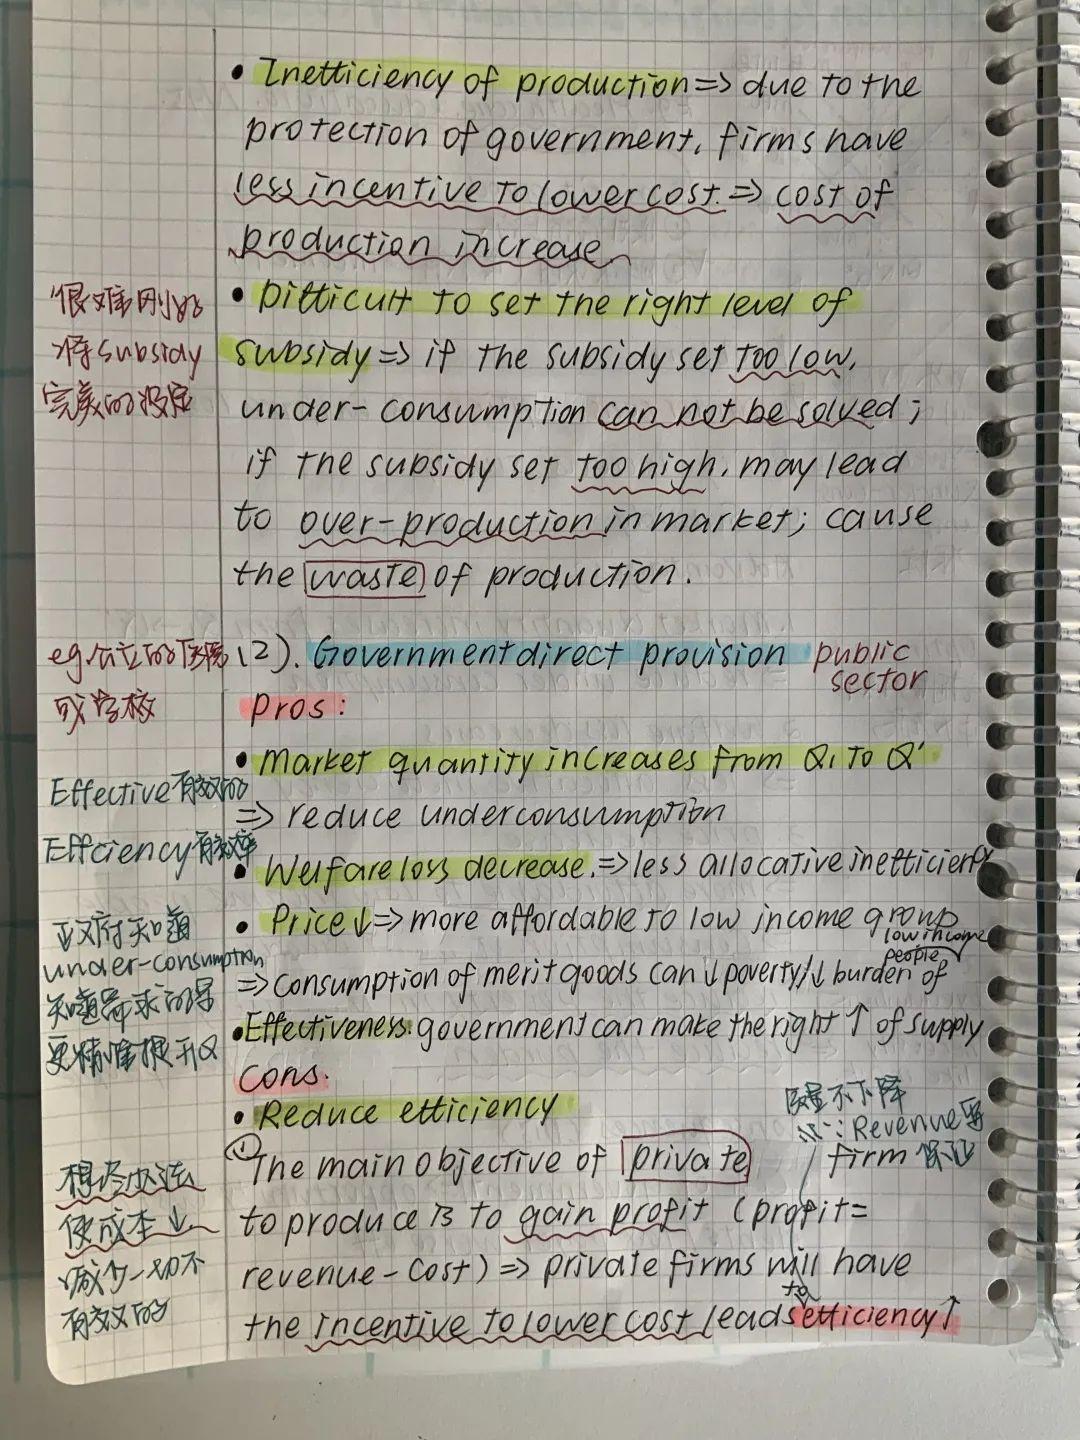 • Inefficiency of production => due to the
protection of government, firms have
less incentive to lower cost. => cost of
production increase
很难刚好
将subsidy
完美的设定
• Difficult to set the right level of
subsidy => if the subsidy set too low,
under-consumption can not be solved;
if the subsidy set too high, may lead
to over-production in market; cause
the waste of production.
eg.公立的医院
或学校
(2). Government direct provision public
sector
Pros:
• Market quantity increases from Q1 to Q'
=> reduce underconsumption
Effective 有效的
Effciency 有效率
• Welfare loss decrease. => less allocative inefficiency
• Price↓ => more affordable to low income group
low income
people
=> consumption of merit goods can ↓ poverty/↓ burden of
政府知道
under-consumption
知道需求的是
更精准提升Q
• Effectiveness. government can make the right ↑ of supply
Cons.
• Reduce efficiency
质量不下降
∵ Revenue要
firm 保证
① The main objective of private
to produce is to gain profit (profit=
revenue-cost) => private firms will have
to
the incentive to lower cost leads efficiency↑
想尽办法
使成本↓
减少一切不
有效的